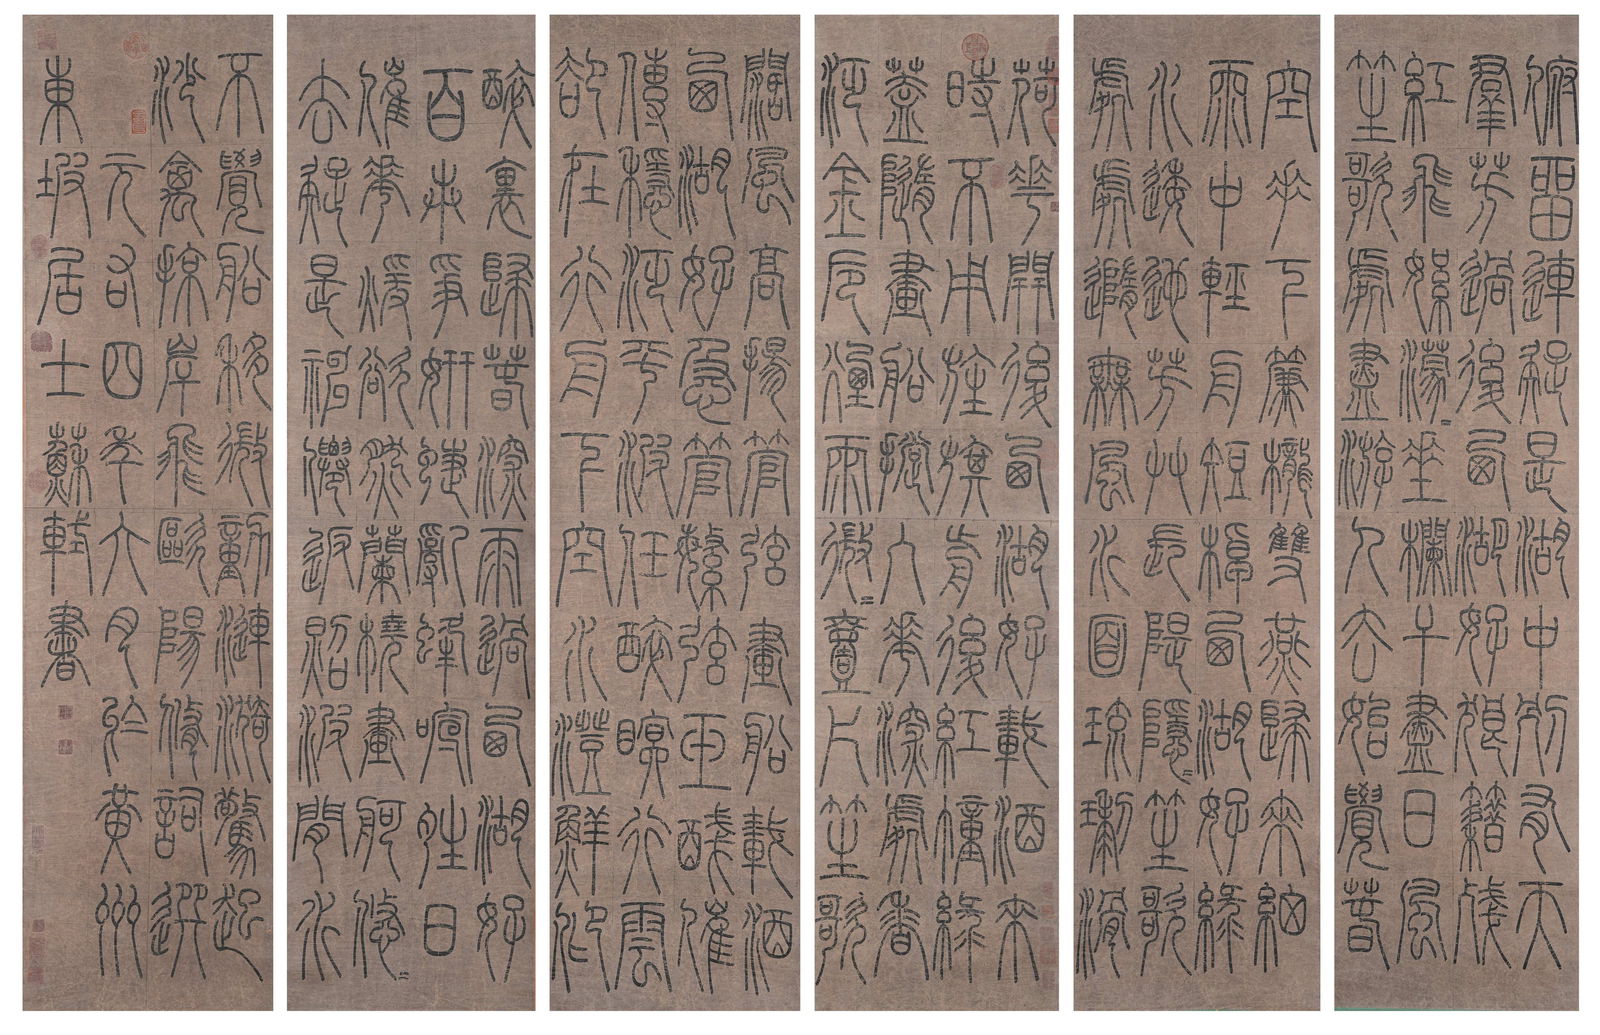 俯畱連疑是湖中別有天
羣芳過後西湖好狼籍殘
紅飛絮濛=垂欄干盡日風
笙歌處盡游人去始覺春
空垂下簾櫳雙燕歸來細
雨中輕舟短棹西湖好綠
水逶迤芳草長隄隱=笙歌
處處隨無風水面琉璃滑
荷花開後西湖好載酒來
時不用旌旗前後紅幢綠
蓋隨畫船撐入花深處香
泛金卮煙雨微=壹片笙歌
闊風高揚管弦畫船載酒
西湖好急管繁弦玉盞催
傳穩泛平波任醉眠行雲
卻在行舟下空水澄鮮俯
醉裏歸春深雨過西湖好
百卉爭妍蝶亂蜂喧晴日
催花暖欲然蘭橈畫舸悠=
去疑是神僊返照波間水
不覺船移微動漣漪驚起
沙禽掠岸飛歐陽修詞選
元祐四年六月於黃州
東坡居士蘇軾書